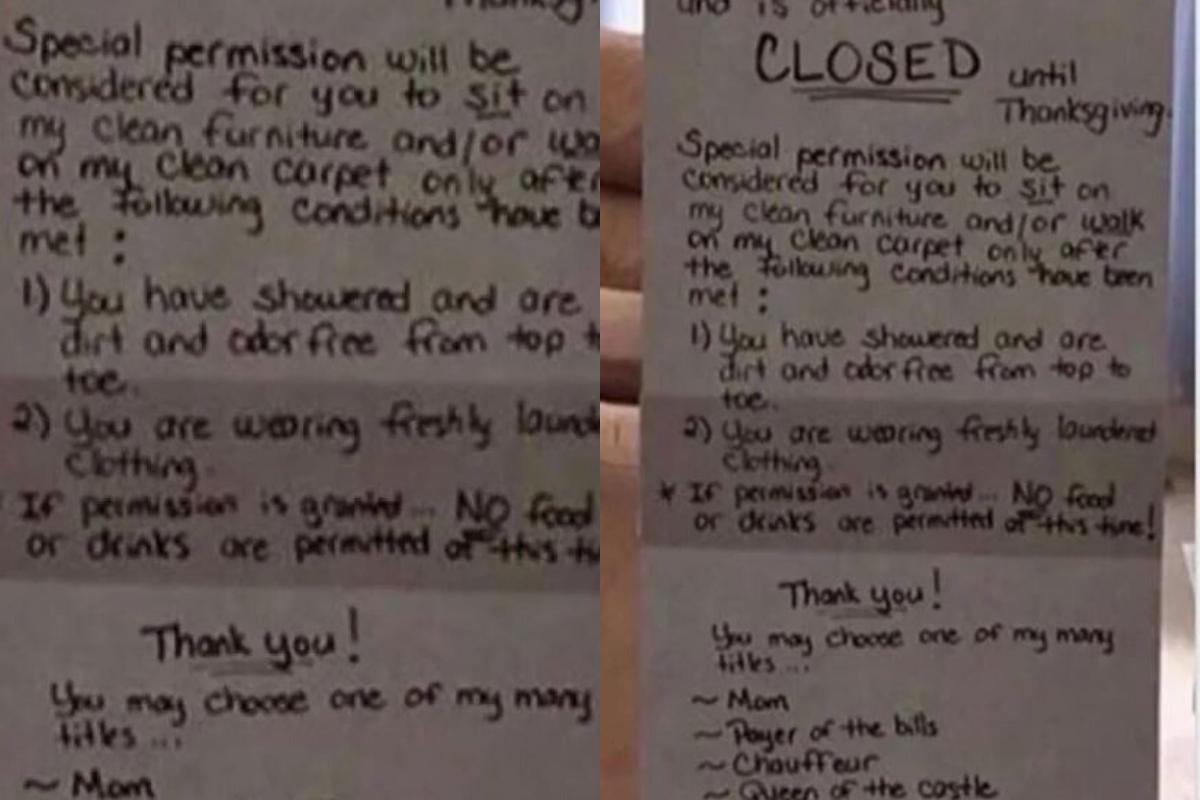 Special permission will be
considered for you to sit on
my clean furniture and/or
on my clean carpet only after
the following conditions have
met :
1) You have showered and are
dirt and odor free from top
toe.
2) You are wearing freshly
clothing.
If permission is granted... NO food
or drinks are permitted at this
Thank you!
You may choose one of my many
titles...
~ Mom
and is officially
CLOSED until
Thanksgiving.
Special permission will be
considered for you to sit on
my clean furniture and/or walk
on my clean carpet only after
the following conditions have been
met :
1) You have showered and are
dirt and odor free from top to
toe.
2) You are wearing freshly laundered
clothing.
* If permission is granted... NO food
or drinks are permitted at this time!
Thank you!
You may choose one of my many
titles...
~ Mom
~ Payer of the bills
~ Chauffeur
~ Queen of the castle